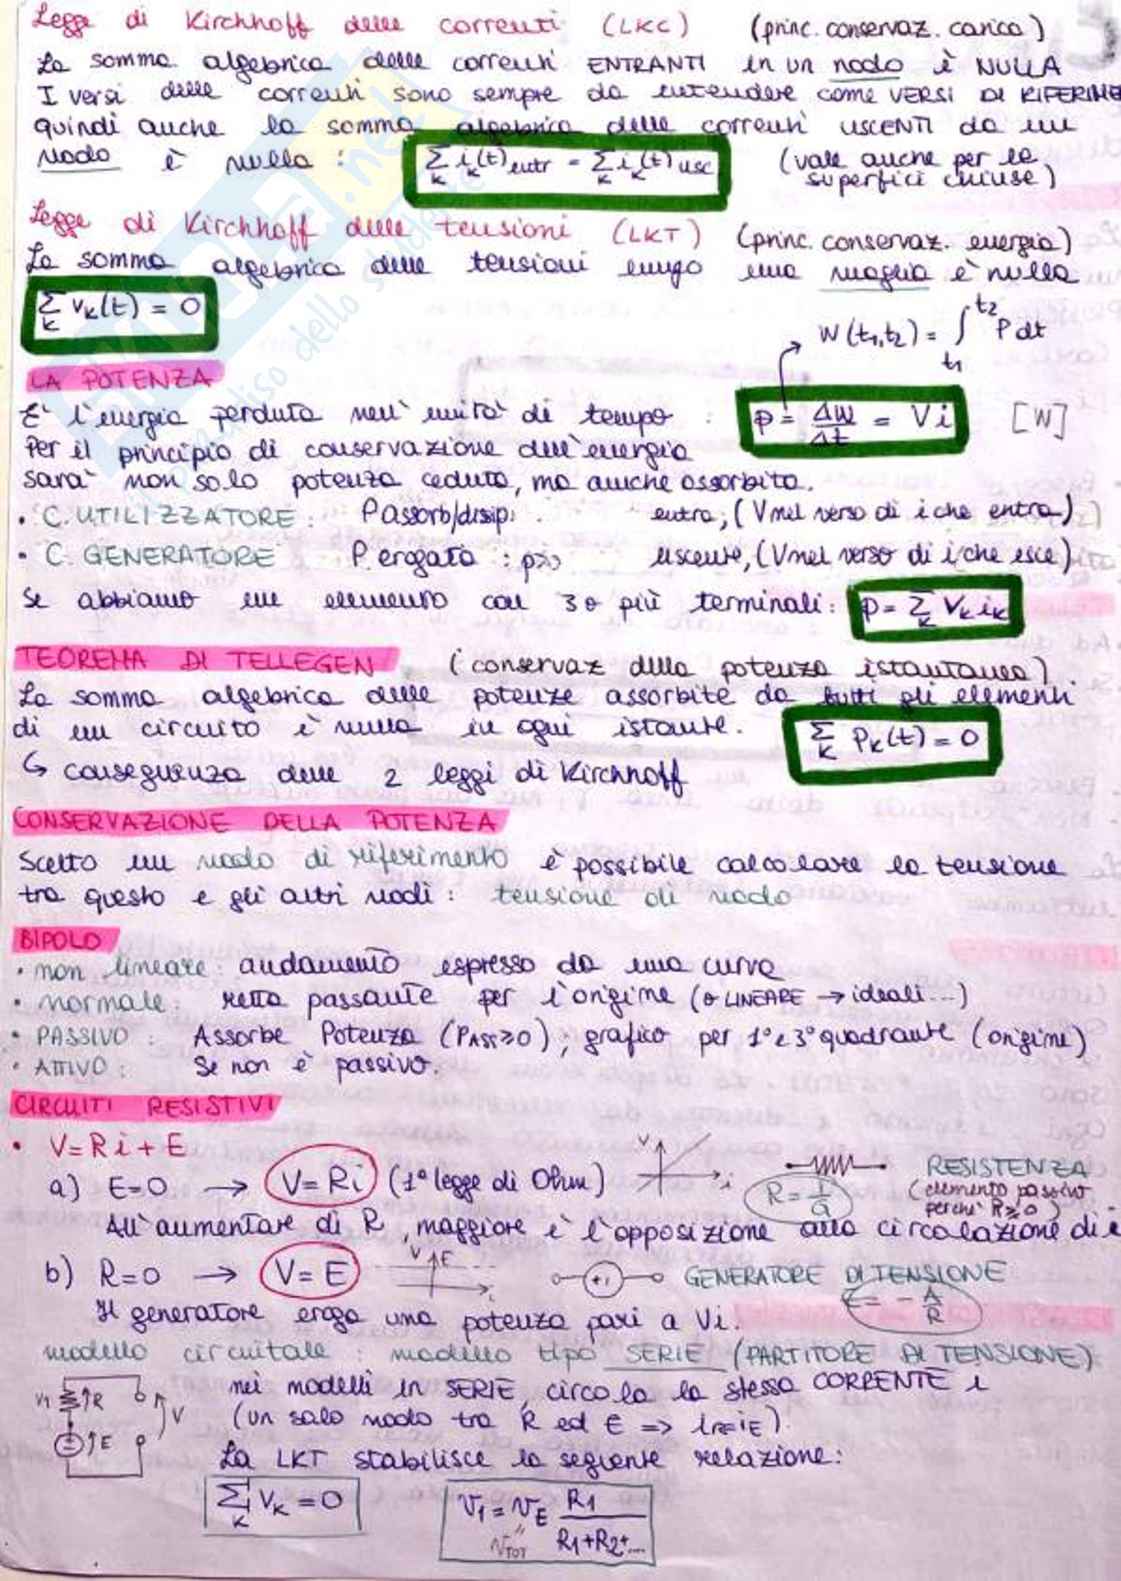 Legge di Kirchhoff delle correnti (LKC) (princ. conservaz. carica)
La somma algebrica delle correnti ENTRANTI in un nodo è NULLA
I versi delle correnti sono sempre da intendere come VERSI DI RIFERIME
quindi anche la somma algebrica delle correnti USCENTI da un
nodo è nulla : Σk ik(t) entr = Σk ik(t) usc (vale anche per le
superfici chiuse)
Legge di Kirchhoff delle tensioni (LKT) (princ. conservaz. energia)
La somma algebrica delle tensioni lungo una maglia è nulla
Σk vk(t) = 0
W(t1,t2) = ∫t1 t2 P dt
LA POTENZA
E' l'energia perduta nell'unità di tempo : p = ΔW/Δt = Vi [W]
Per il principio di conservazione dell'energia
sarà non solo potenza ceduta, ma anche assorbita.
• C. UTILIZZATORE : Passorb/dissip: entra, (V nel verso di i che entra)
• C. GENERATORE P. ergata : p>0 uscente, (V nel verso di i che esce)
Se abbiamo un elemento con 3 o più terminali: p = Σk Vk ik
TEOREMA DI TELLEGEN (conservaz della potenza istantanea)
La somma algebrica delle potenze assorbite da tutti gli elementi
di un circuito è nulla in ogni istante. Σk Pk(t) = 0
↳ conseguenza delle 2 leggi di Kirchhoff
CONSERVAZIONE DELLA POTENZA
Scelto un nodo di riferimento è possibile calcolare la tensione
tra questo e gli altri nodi : tensione di nodo
BIPOLO
• non lineare : andamento espresso da una curva
• normale : retta passante per l'origine (o LINEARE → ideali...)
• PASSIVO : Assorbe Potenza (PASS≥0), grafico per 1° e 3° quadrante (origine)
• ATTIVO : Se non è passivo.
CIRCUITI RESISTIVI
• V=Ri+E
a) E=0 → V=Ri (1° legge di Ohm) V i R = 1/G RESISTENZA
(elemento passivo
perché R≥0)
All'aumentare di R, maggiore è l'opposizione alla circolazione di i
b) R=0 → V=E V E i GENERATORE DI TENSIONE
E = - A/R
Il generatore eroga una potenza pari a Vi.
modello circuitale : modello tipo SERIE (PARTITORE DI TENSIONE)
V1 R V E
nei modelli in SERIE, circola la stessa CORRENTE i
(un solo nodo tra R ed E => iR=iE).
La LKT stabilisce la seguente relazione:
Σk Vk = 0
v1 = vE R1/(R1+R2+...)
vTOT